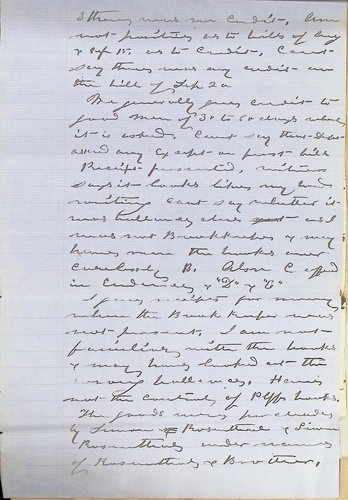 3 there was no credit, Am
not positive as to bills of Aug
& Sep 15. as to credit, Cant
say there was any credit on
the bill of Sep 20
We generally give credit to
good men of 30 to 60 days when
it is asked. Cant say that Deft
asked any except on first bill
Receipt presented, witness
says it looks like my hand
writing cant say whether it
was balance due as I
was not Bookkeeper & may
have seen the books over
B. Also C offd
in Evidence, & "D" & "E"
I gave receipts for money
when the Book Keeper was
not present. I am not
familiar with the books
& may have looked at the
wrong balances. Have
not the custody of Plffs books.
The goods were purchased
by Simon Rosenthal &
Rosenthal under name
of Rosenthal & Brother.